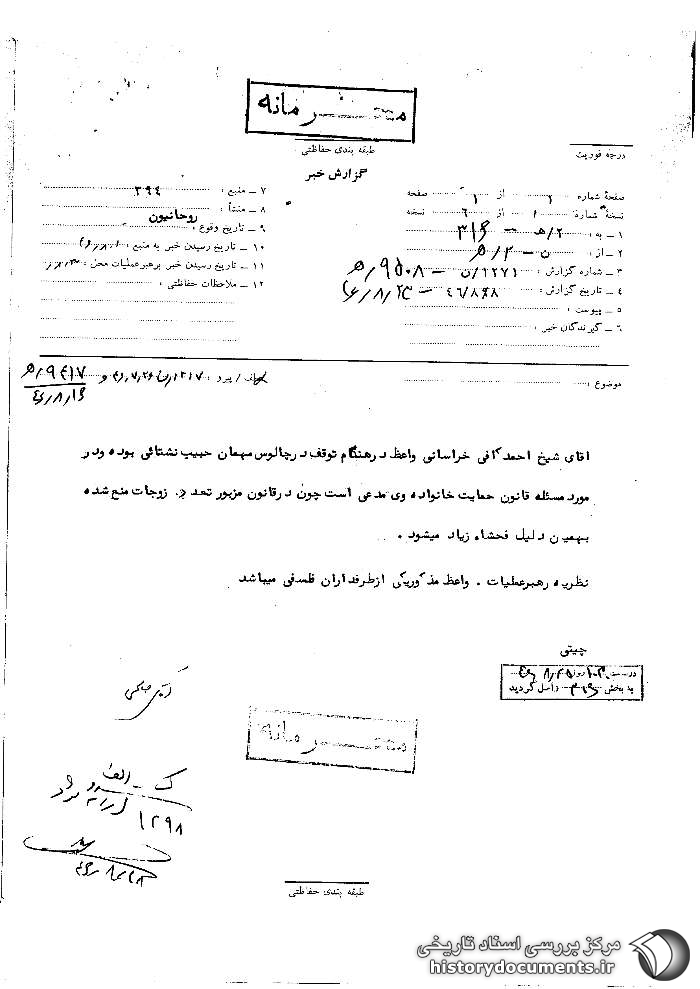 محرمانه
طبقه بندی حفاظتی
گزارش خبر
درجه فوریت
صفحهٔ شماره ۱ از ۱ صفحه
نسخهٔ شماره ۱ از ۶ نسخه
۱ ـ به : ۲/هـ ـ ۳۱۶
۲ ـ از : ن ـ ۲/هـ
۳ ـ شماره گزارش :
۴ ـ تاریخ گزارش :
۵ ـ پیوست :
۶ ـ گیرندگان خبر :
۷ ـ منبع : ۳۹۴
۸ ـ منشأ : روحانیون
۹ ـ تاریخ وقوع :
۱۰ ـ تاریخ رسیدن خبر به منبع :
۱۱ ـ تاریخ رسیدن خبر برهبر عملیات محل :
۱۲ ـ ملاحظات حفاظتی :
موضوع :
عطف / پیرو :
آقای شیخ احمد کافی خراسانی واعظ در هنگام توقف در چالوس مهمان حبیب نشتائی بوده و در
مورد مسئله قانون حمایت خانواده وی مدعی است چون در قانون مزبور تعدد زوجات منع شده
بهمین دلیل فحشاء زیاد میشود .
نظریه رهبر عملیات . واعظ مذکور یکی از طرفداران فلسفی میباشد
چیتی
در ساعت روز
به بخش ۳۱۶ واصل گردید
محرمانه
ک ـ الف
۱۲۹۸
طبقه بندی حفاظتی
مرکز بررسی اسناد تاریخی
historydocuments.ir